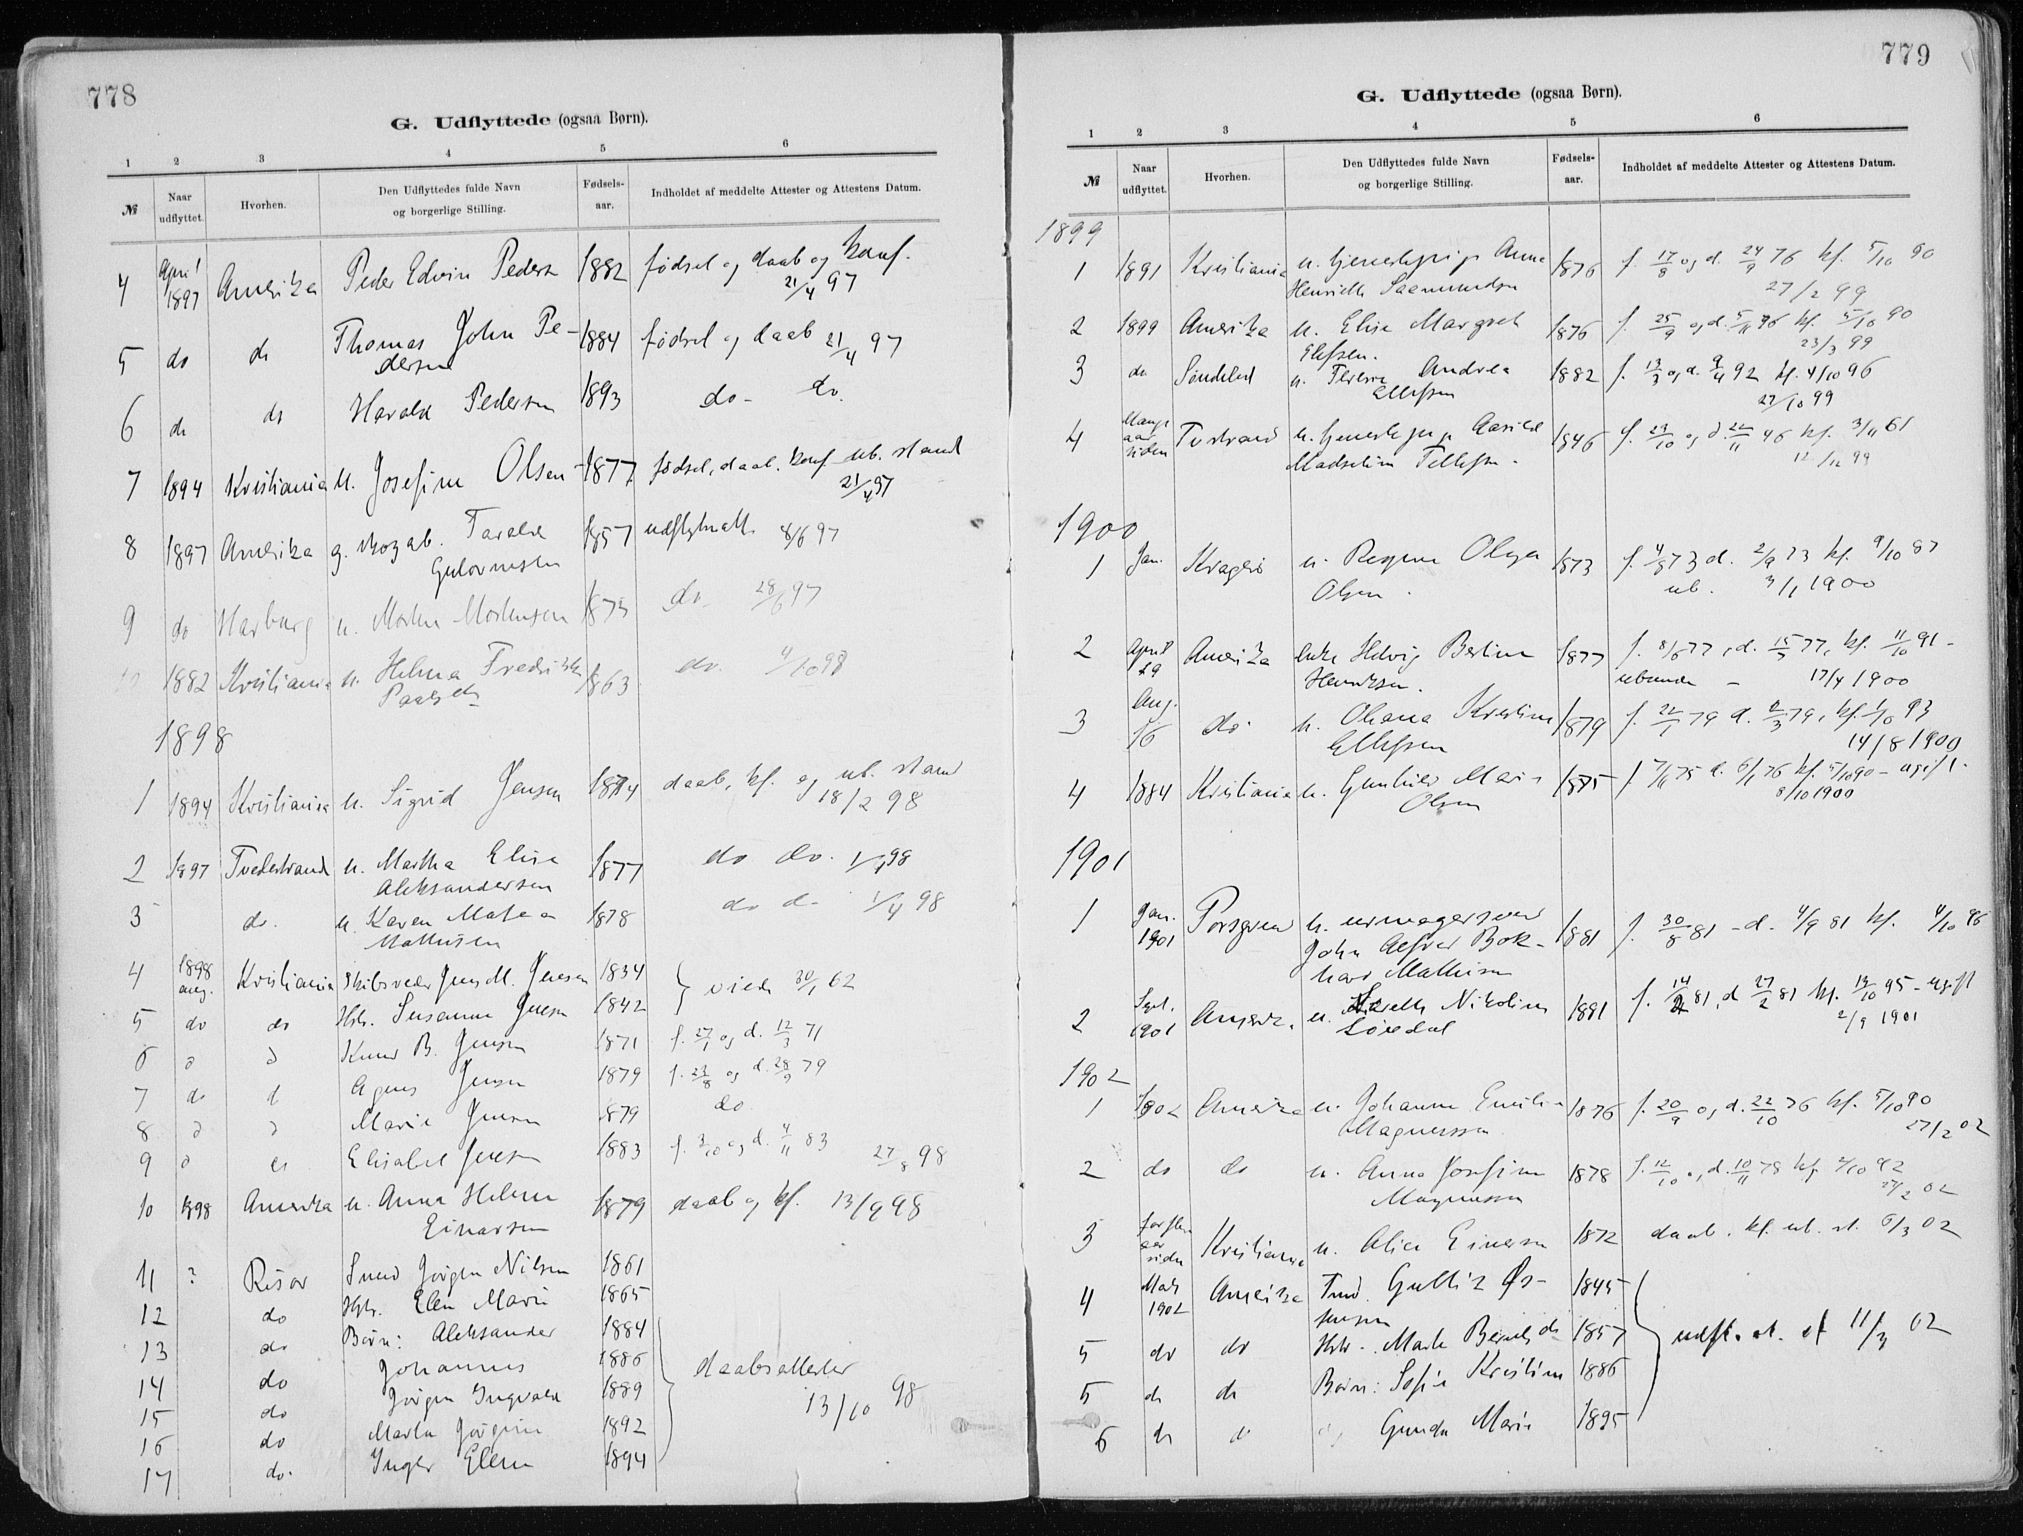 778
G. Udflyttede (ogsaa Børn).
1 2 3 4 5 6
№ Naar udflyttet. Hvorhen. Den Udflyttedes fulde Navn og borgerlige Stilling. Fødsels-aar. Indholdet af meddelte Attester og Attestens Datum.
4 April 1897 Amerika Peder Edvin Pedersen 1882 fødsel og daab og konf. 21/4 97
5 do do Thomas John Pe-
dersen 1884 fødsel og daab 21/4 97
6 do do Harald Pedersen 1893 do - do.
7 1894 Kristiania u. Josefine Olsen 1877 fødsel, daab, konf. ub. stand
21/4 97
8 1897 Amerika g. Tarald 1857 udflytn.att. 4/6 97
9 do Harburg u. Morten Mortensen 1875 do - 28/6 97
10 1882 Kristiania u. Helma Fredrikke 1863 do. 4/10 98
1898
1 1894 Kristiania u. Sigrid Jensen 1874 daab, kf. og ub. stand
18/2 98
2 1897 Tvedestrand u. Martha Elise
Aleksandersen 1877 do do. 1/4 98
3 do. u. Karen
Mathisen 1878 do do 1/4 98
4 1898 aug. Kristiania Skibsreder Jens M. Jensen 1834 viede 30/1 62
5 do do Hstr. Susanne Jensen 1842
6 d d Knud B. Jensen 1871 f. 27/1 og d. 12/3 71
7 do d Agnes Jensen 1879 f. 23/8 og d. 28/9 79
8 d d Marie Jensen 1879 do
9 d do Elisabet Jensen 1883 f. 3/10 og d. 4/11 83 27/8 98
10 1898 Amerika u. Anna Helene
Einarsen 1879 daab og kf. 13/9 98
11 ? Risør Jørgen Nilsen 1861
12 do Hstr. Elen Marie 1865
13 do Børn: Aleksander 1884
14 do Johannes 1886 daabsattester
15 do Jørgen Ingvald 1889 13/10 98
16 do Marta Jørgine 1892
17 do. Inger Elene 1894
779
G. Udflyttede (ogsaa Børn).
1 2 3 4 5 6
№ Naar udflyttet. Hvorhen. Den Udflyttedes fulde Navn og borgerlige Stilling. Fødsels-aar. Indholdet af meddelte Attester og Attestens Datum.
1899
1 1891 Kristiania u. tjenestepige Anne
Henriette Saamundsen 1876 f. 17/8 og d. 24/9 76 kf. 5/10 90
27/2 99
2 1899 Amerika u. Elise Margret
Ellefsen. 1876 f. 25/9 og d. 5/11 76 kf. 5/10 90
23/3 99
3 do Søndeled u. Andrea
Ellefsen 1882 f. 13/3 og d. 9/4 92 kf. 4/10 96
27/10 99
4 Mange aar siden Tvestrand u. tjenestepige Aasild
Madseline Tellefsen 1846 f. 23/10 og d. 22/11 46 kf. 3/11 61
12/12 99
1900
1 Jan. Kragerø u. Regine Olega
Olsen. 1873 f. 4/8 73 d. 2/9 73 kf. 9/10 87
ub. 3/1 1900
2 April 29 Amerika enke Hedvig Bertine
Henriksen. 1877 f. 8/6 77, d. 15/7 77, kf. 11/10 91 -
17/4 1900
3 Aug. 16 do. u. Oliana Kristine
Ellefsen 1879 f. 22/1 79 d. 2/3 79, kf. 1/10 93
14/8 1900
4 1884 Kristiania u. Gunhild Marie
Olsen 1875 f. 7/11 75 d. 6/1 76 kf. 5/10 90 - ugift.
8/10 1900
1901
1 Jan. 1901 Porsgrun u. urmagersvend
John Alfred
Mathisen 1881 f. 30/8 81 - d. 4/9 81 kf. 4/10 96
2 Sept. 1901 Amerik. u. Nikoline
Løvdal 1881 f. 14/2 81, d 27/2 81 kf. 13/10 95 - ugift
2/9 1901
1902
1 1902 Amerika u. Johanne Emilie
Magnussen 1876 f. 20/9 og d. 22/10 76 kf. 5/10 90
27/2 02
2 do do u. Anna Josefine
Magnussen 1878 f. 12/10 og d. 10/11 78 kf. 2/10 92
27/2 02
3 for flere aar siden Kristiania u. Alice Einersen 1872 daab. kf. ub. st. 6/3 02
4 Mars 1902 Amerika Gullik 1845
5 do do Hstr. 1857 udfl. at. 11/3 02
5 do do Børn: Sofie Kristine 1886
6 do do Gunda Marie 1895